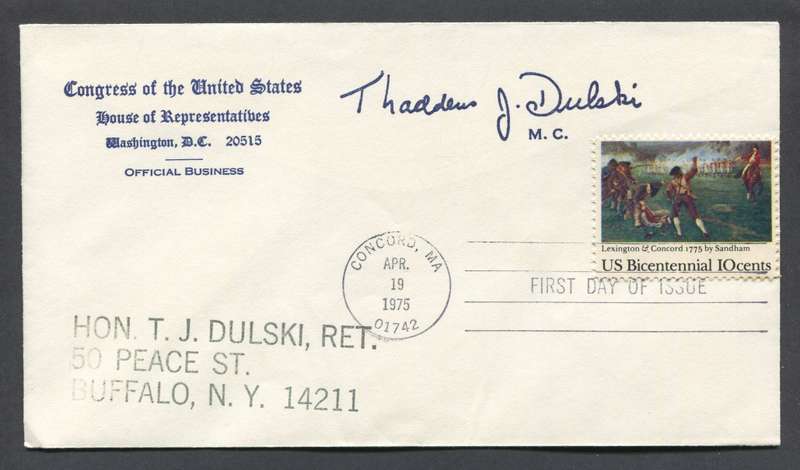 Congress of the United States
House of Representatives
Washington, D.C. 20515
OFFICIAL BUSINESS
Thaddeus J. Dulski
M. C.
Lexington & Concord 1775 by Sandham
US Bicentennial IOcents
CONCORD, MA
APR.
19
1975
01742
FIRST DAY OF ISSUE
HON. T. J. DULSKI, RET.
50 PEACE ST.
BUFFALO, N. Y. 14211